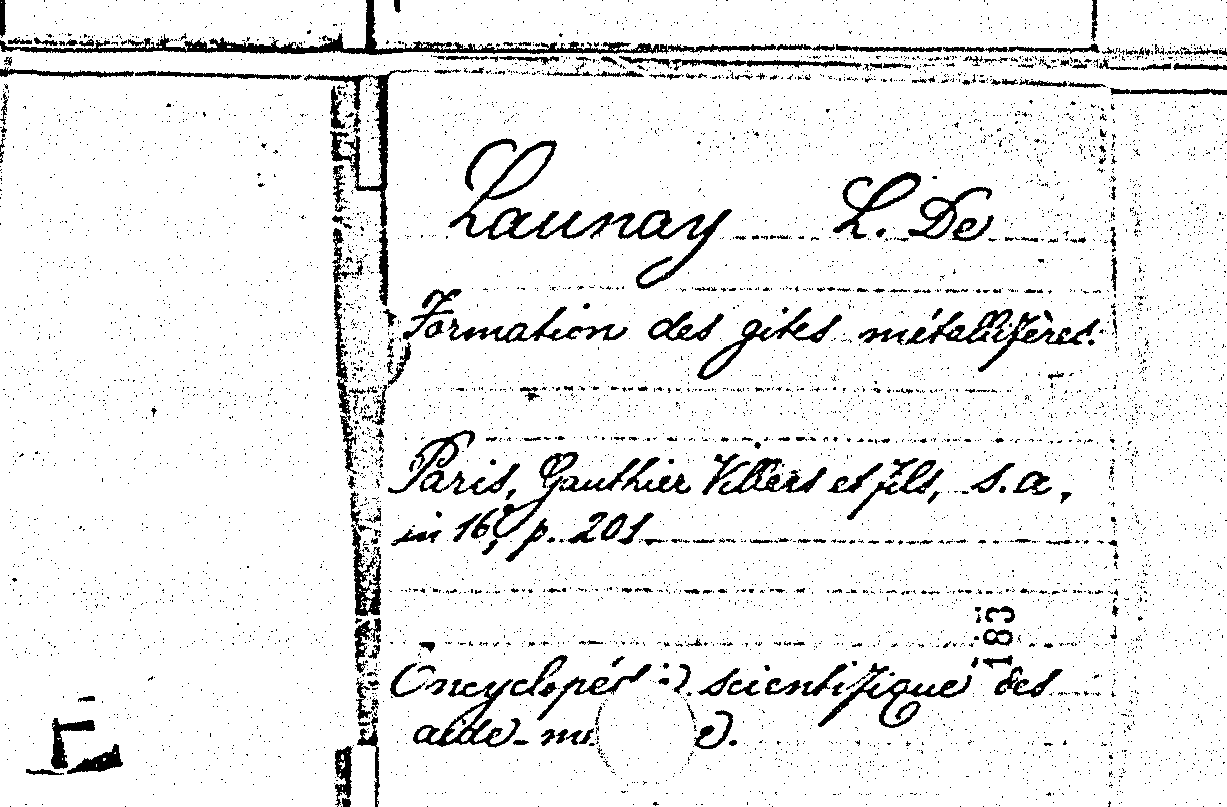 Launay L. De
Formation des gîtes métallifères.
Paris, Gauthier Villers et fils, s.a,
in 16°, p. 201
183
scientifique des
aide-